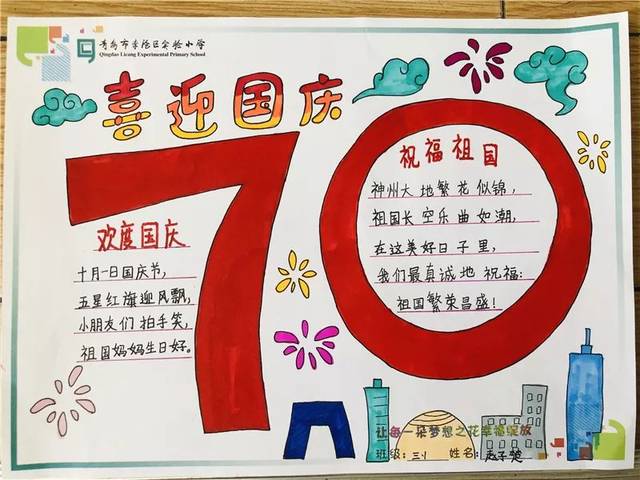 青岛市李沧区实验小学
Qingdao Licang Experimental Primary School
喜迎国庆
70
欢度国庆
十月一日国庆节，
五星红旗迎风飘，
小朋友们拍手笑，
祖国妈妈生日好。
祝福祖国
神州大地繁花似锦，
祖国长空乐曲如潮，
在这美好日子里，
我们最真诚地祝福：
祖国繁荣昌盛！
让每一朵梦想之花幸福绽放
班级：三、1 姓名：